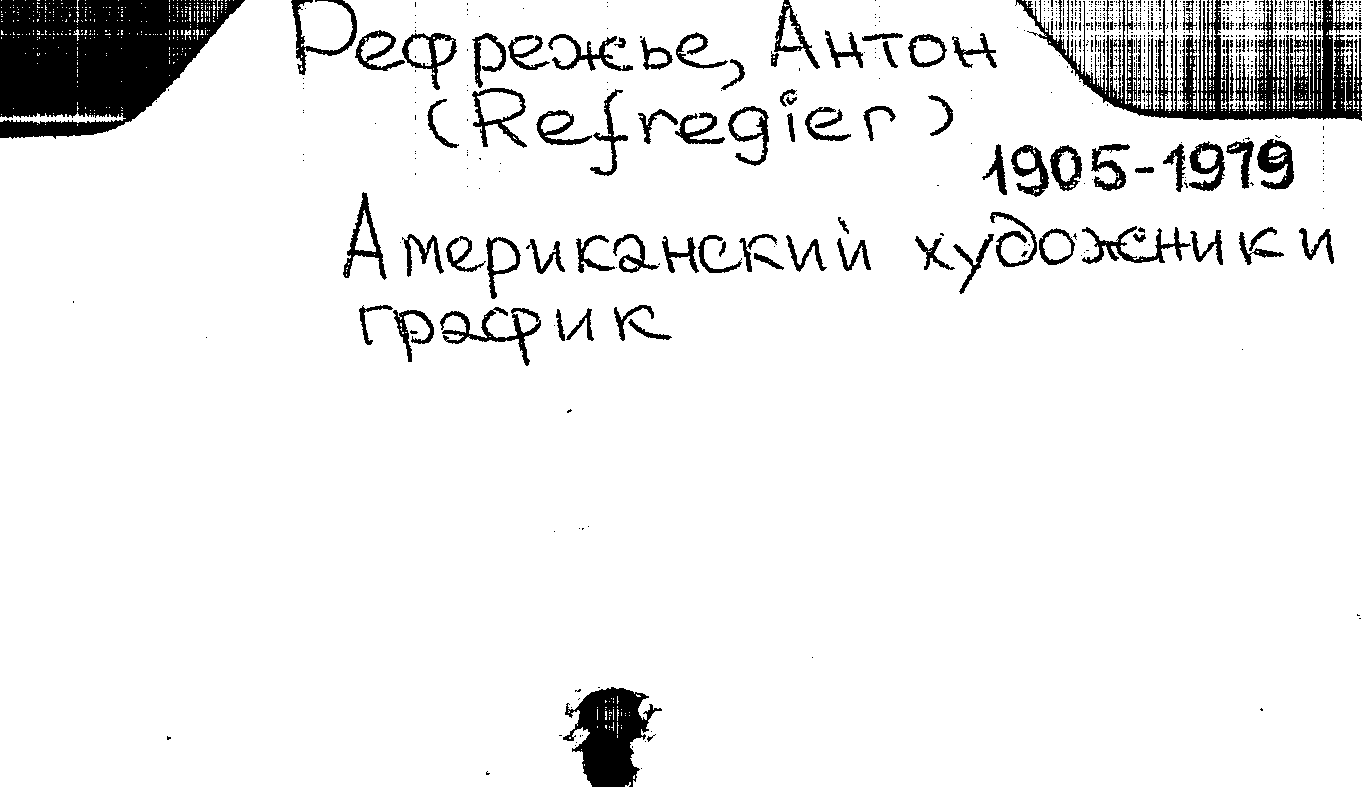 Рефрежье, Антон
(Refregier)
1905-1979
Американский художник и
график